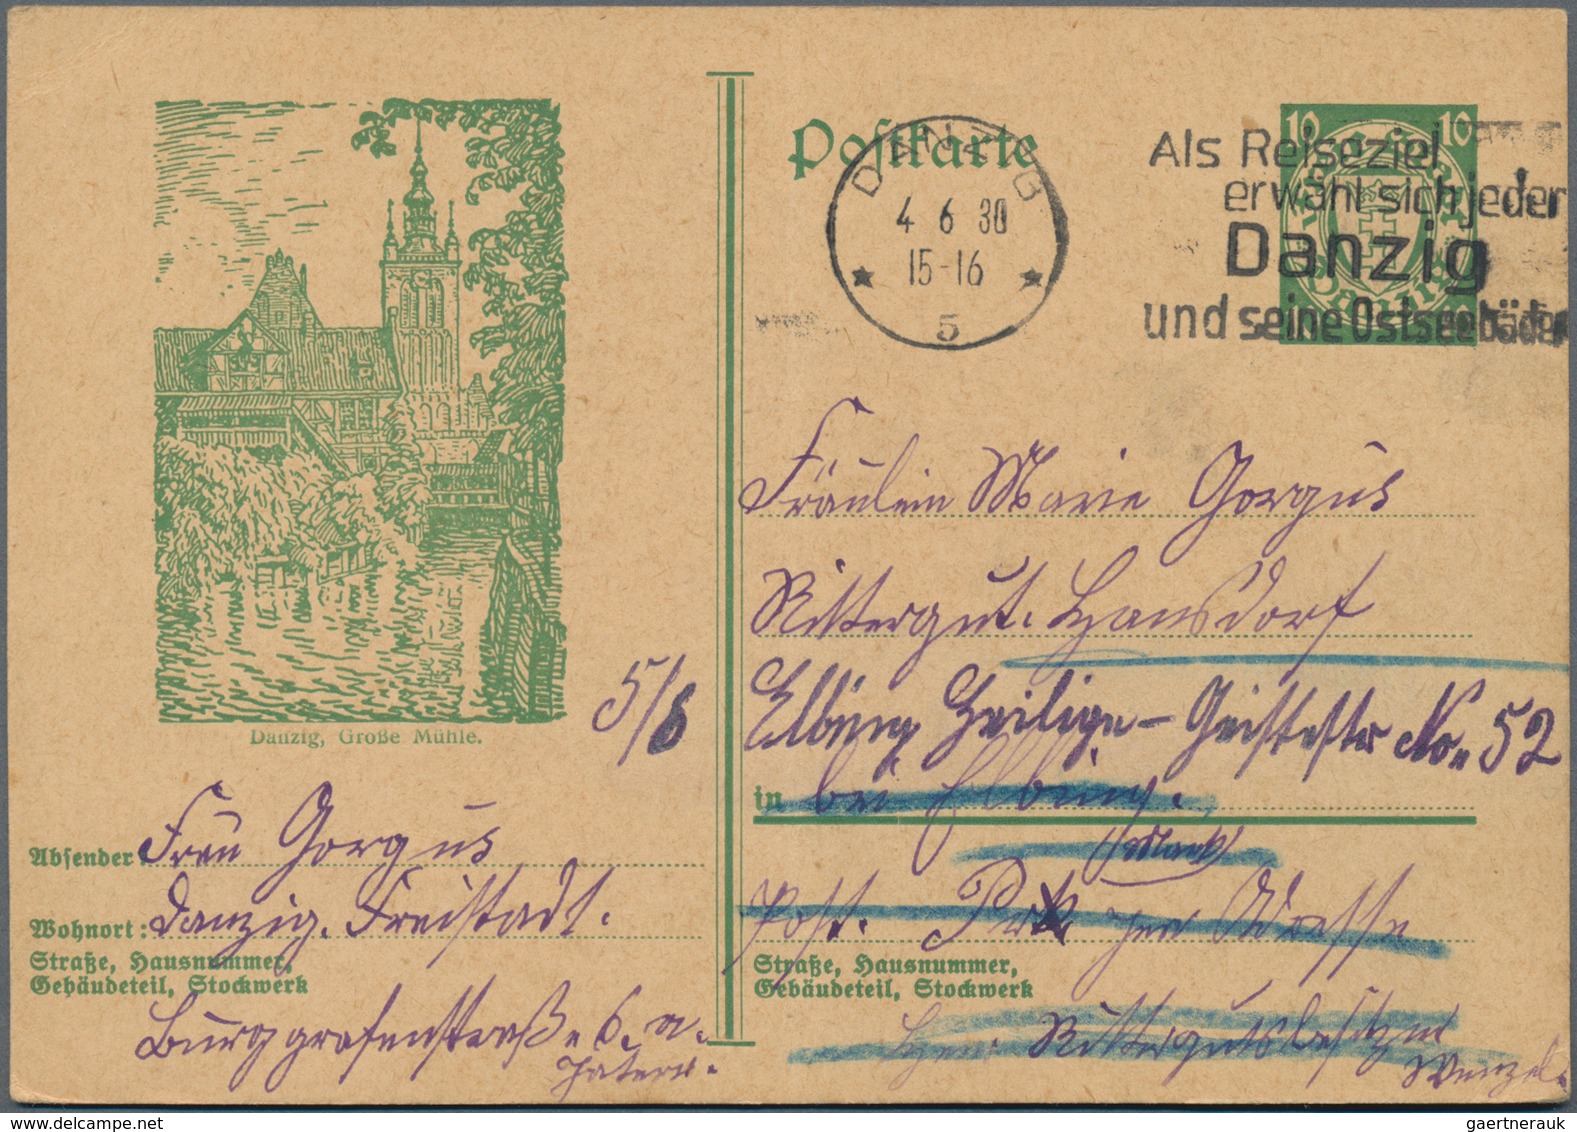 Postkarte
DANZIG
4 6 30
15-16
5
Als Reiseziel
erwählt sich jeder
Danzig
und seine Ostseebäder
10 10
Danzig, Große Mühle.
5/6
Fräulein Marie Gorgus
Rittergut. Hansdorf
Elbing Heilige-Geiststr No. 52
in bei Elbing.
Post. per Adresse
Straße, Hausnummer,
Gebäudeteil, Stockwerk
Herrn Rittergutsbesitzer
Wenzel.
Absender: Frau Gorgus
Wohnort: Danzig. Freistadt.
Straße, Hausnummer,
Gebäudeteil, Stockwerk
Burggrafenstraße 6. a.
gaertnerauk